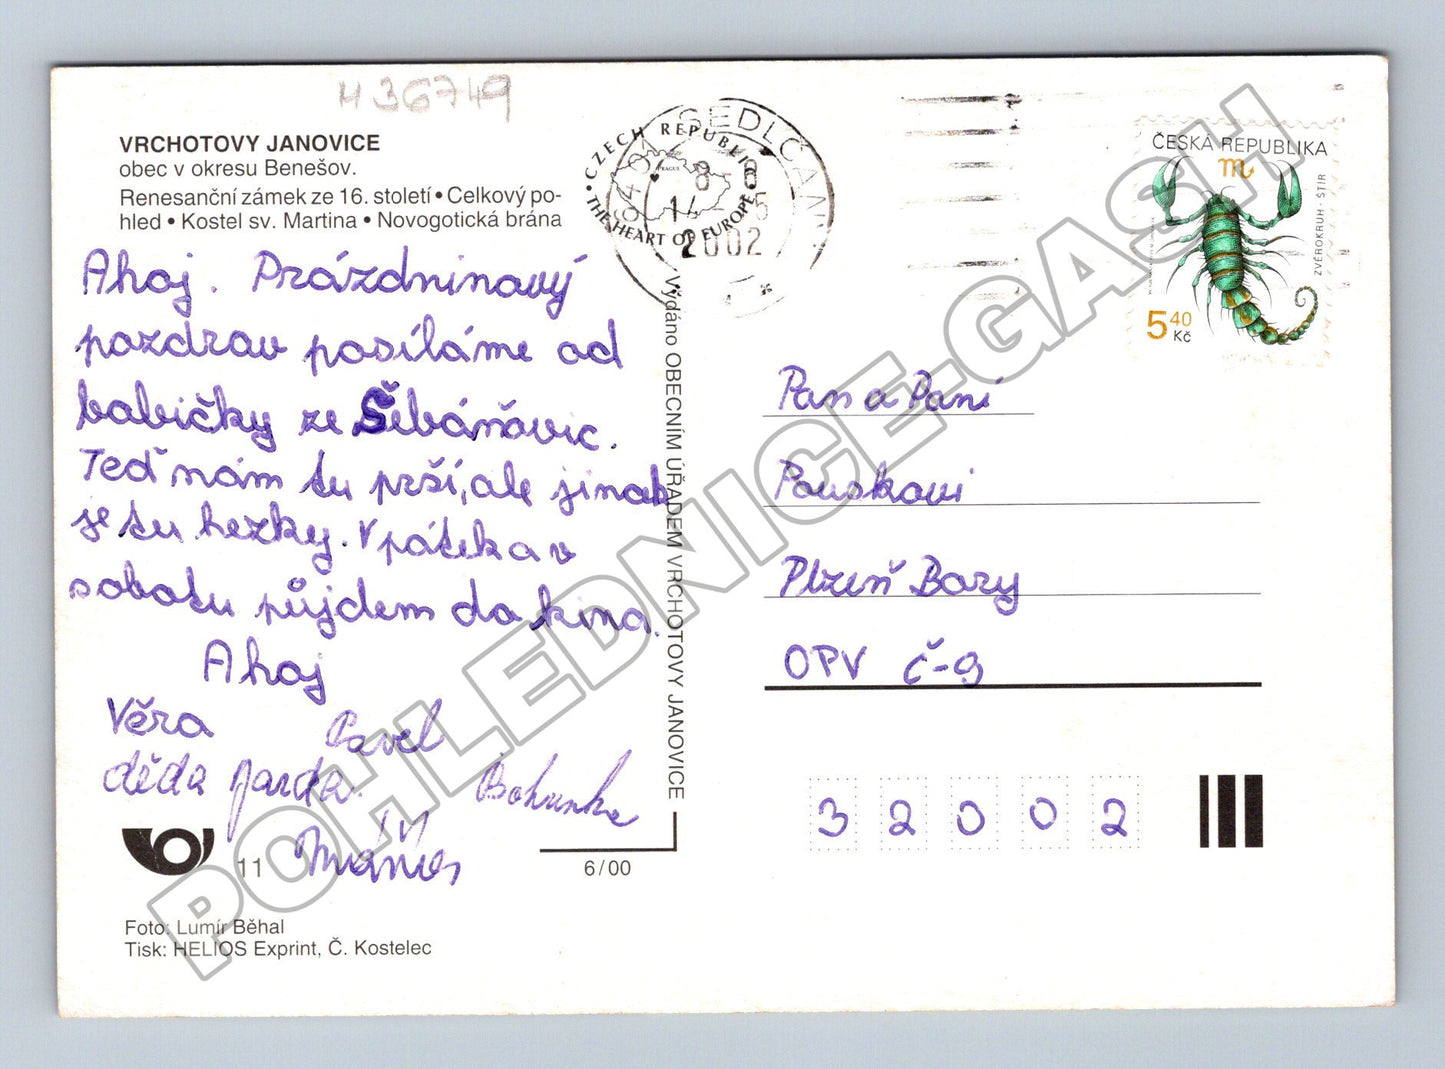 H36749
VRCHOTOVY JANOVICE
obec v okresu Benešov.
Renesanční zámek ze 16. století • Celkový po-
hled • Kostel sv. Martina • Novogotická brána
Ahoj. Prázdninový
pozdrav posíláme od
babičky ze Šebáňovic.
Teď nám tu prší, ale jinak
je tu hezky. V pátek a v
sobotu půjdem do kina.
Ahoj
Věra Pavel
děda Jarda Bohunka
11
6/00
Foto: Lumír Běhal
Tisk: HELIOS Exprint, Č. Kostelec
Vydáno OBECNÍM ÚŘADEM VRCHOTOVY JANOVICE
SEDLČANY
CZECH REPUBLIC
PRAGUE
• THE HEART OF EUROPE
8
14
2002
ČESKÁ REPUBLIKA
ZVĚROKRUH · ŠTÍR
5 40
Kč
Pan a Paní
Pouskovi
Plzeň Bory
OPV č-9
32002
POHLEDNICE-GASH